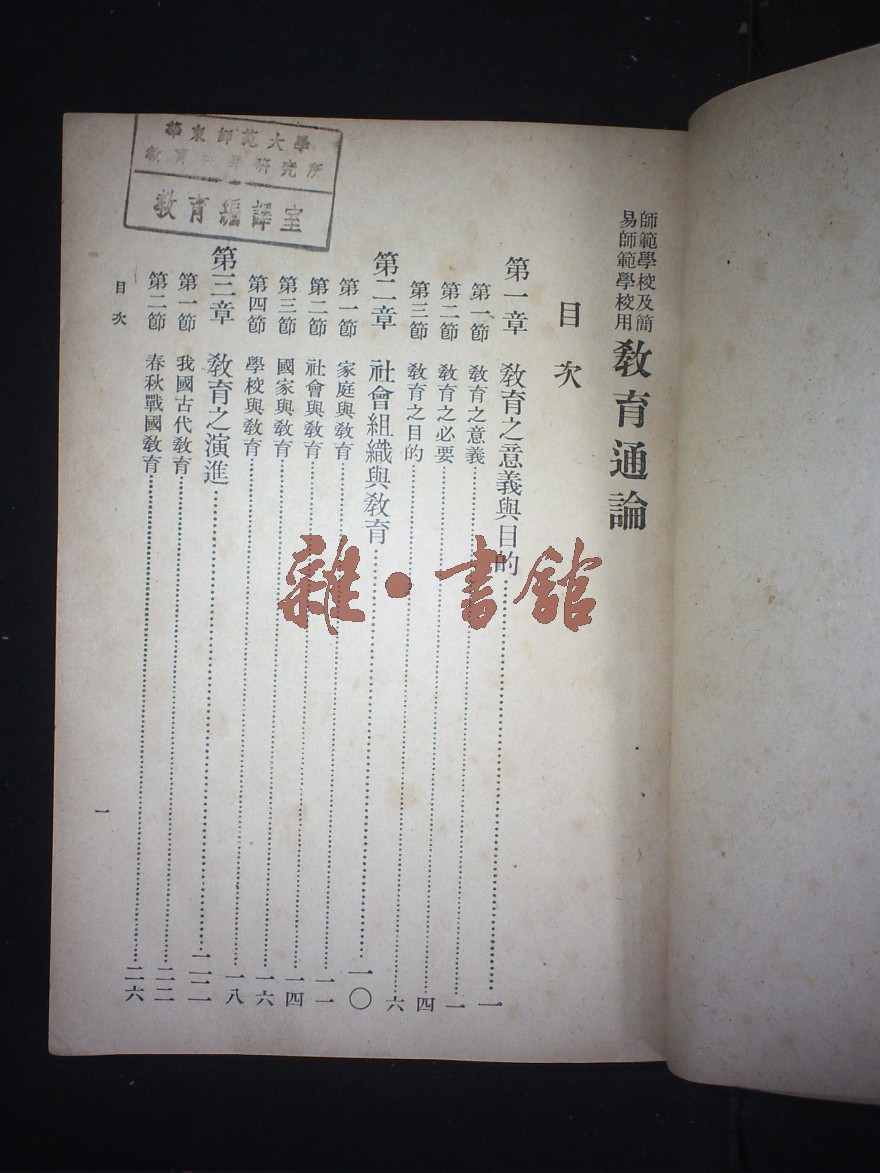 師範學校及簡
易師範學校用
敎育通論
目次
第一章 敎育之意義與目的……一
第一節 敎育之意義……一
第二節 敎育之必要……四
第三節 敎育之目的……六
第二章 社會組織與敎育……一〇
第一節 家庭與敎育……一一
第二節 社會與敎育……一四
第三節 國家與敎育……一六
第四節 學校與敎育……一八
第三章 敎育之演進……二二
第一節 我國古代敎育……二二
第二節 春秋戰國敎育……二六
目次
一
華東師范大學
教育研究所
教育編譯室
雜·書館